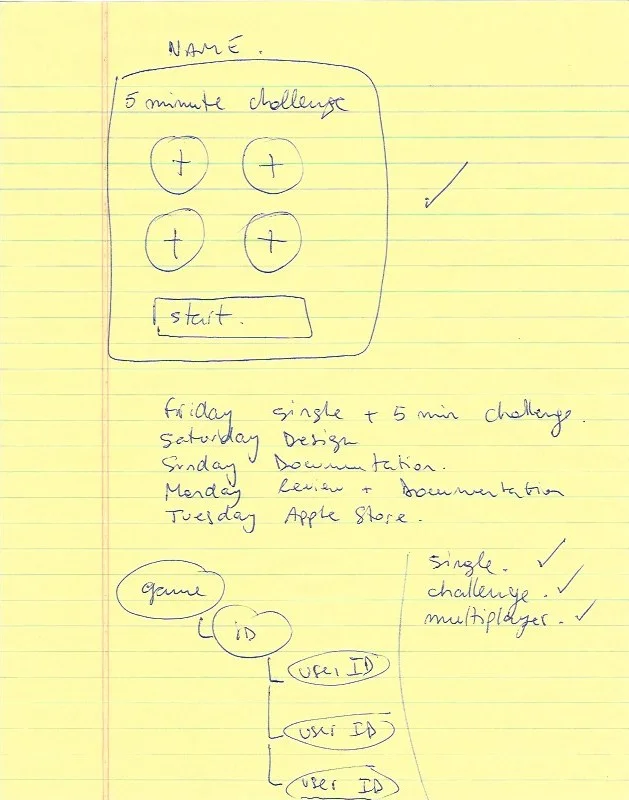 NAME.
5 minute challenge
+ +
+ +
start.
Friday single + 5 min challenge.
Saturday Design
Sunday Documentation.
Monday Review + Documentation
Tuesday Apple Store.
game
ID
user ID
user ID
user ID
single. ✓
challenge. ✓
multiplayer. ✓